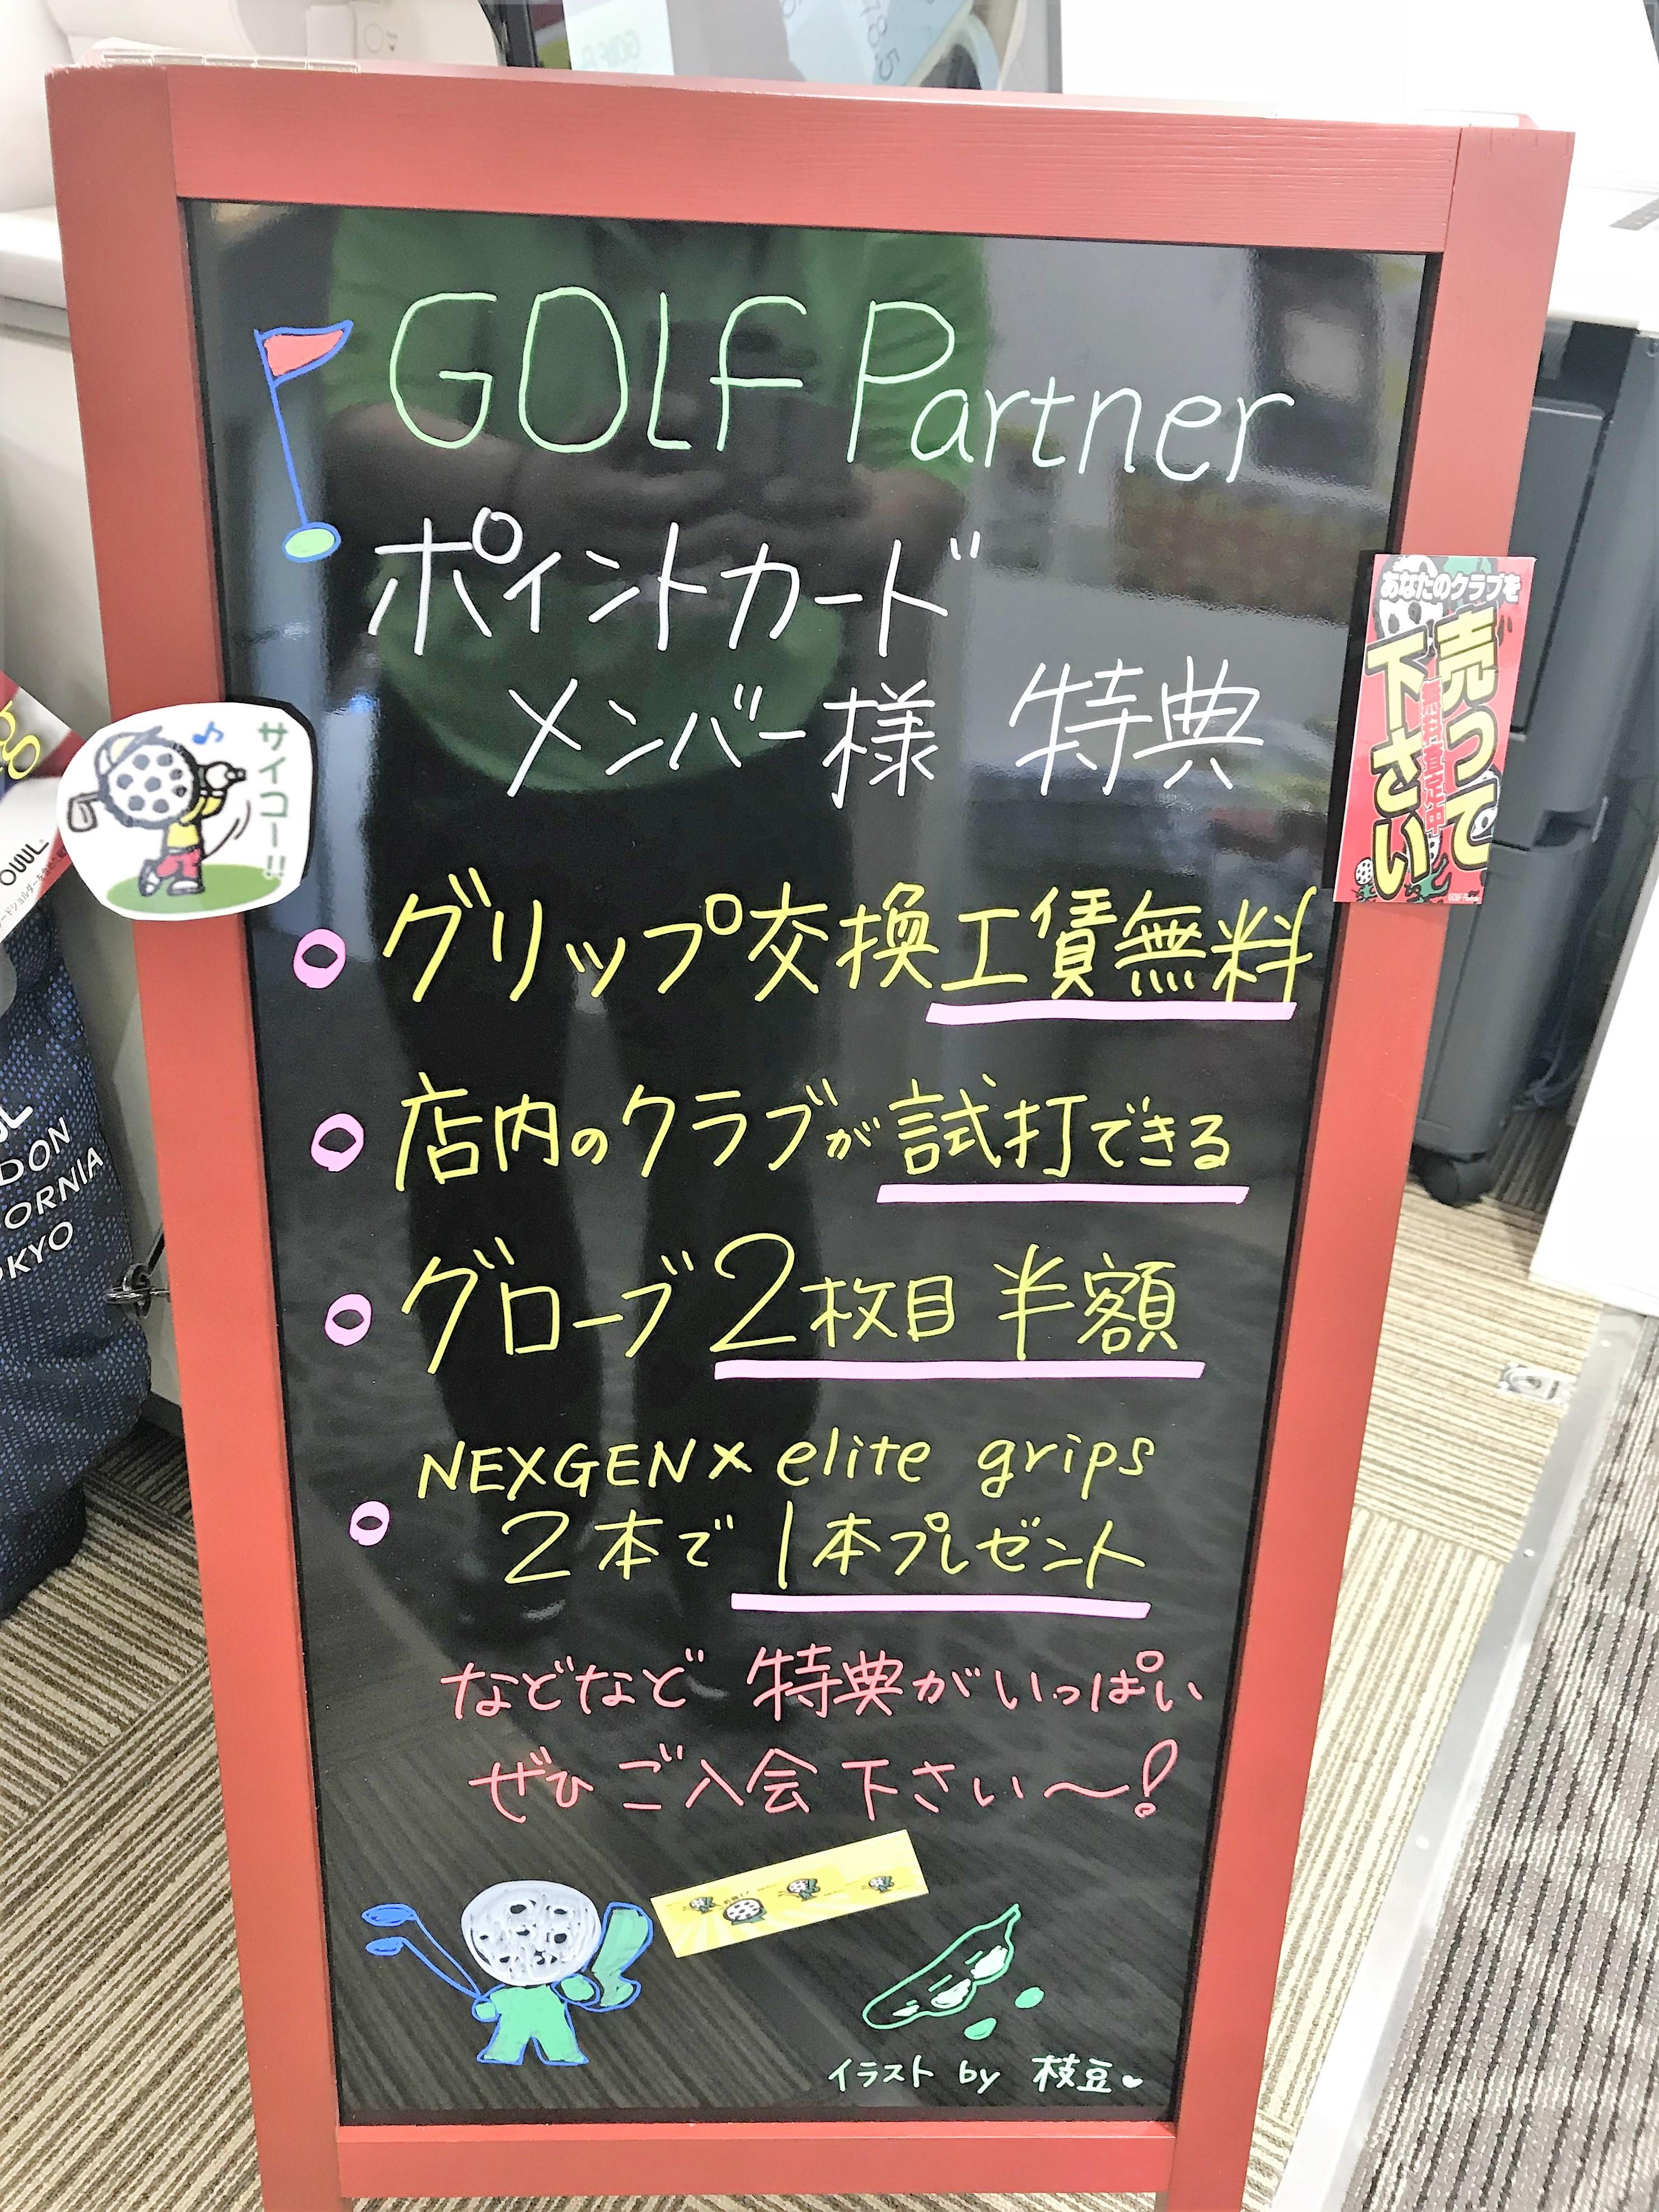 GOLF Partner
ポイントカード
メンバー様 特典
サイコー!!
あなたのクラブを
売って
下さい
グリップ交換工賃無料
店内のクラブが試打できる
グローブ2枚目半額
NEXGEN× elite grips
2本で1本プレゼント
などなど 特典がいっぱい
ぜひ ご入会 下さい〜!
イラスト by 枝豆